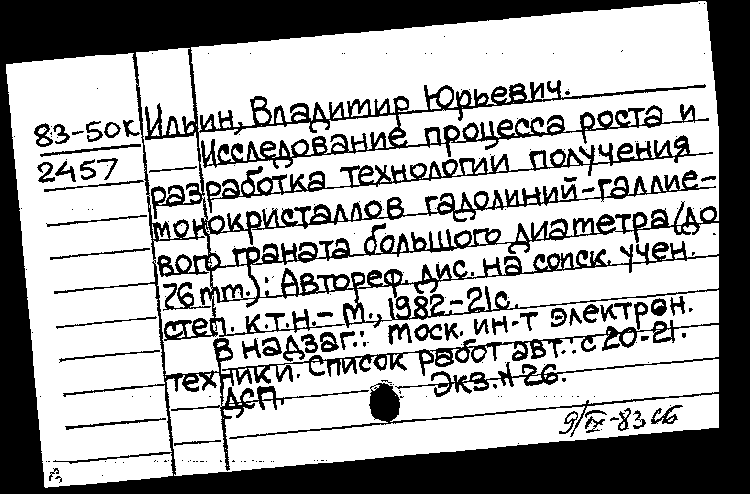 83-50к
2457
Ильин, Владимир Юрьевич.
Исследование процесса роста и
разработка технологии получения
монокристаллов гадолиний-галлие-
вого граната большого диаметра (до
76 mm.): Автореф. дис. на соиск. учен.
степ. к.т.н.- М., 1982.-21с.
В надзаг.: Моск. ин-т электрон.
техники. Список работ авт.: с 20-21.
ДСП. Экз. N 26.
9/IX-83